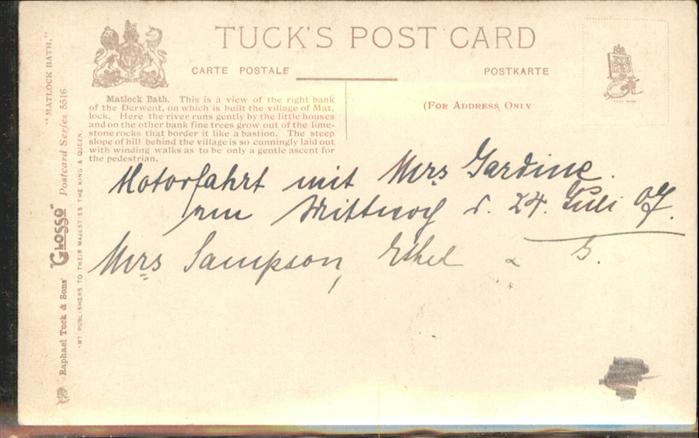 TUCK'S POST CARD
CARTE POSTALE
POSTKARTE
(FOR ADDRESS ONLY
Matlock Bath. This is a view of the right bank
of the Derwent, on which is built the village of Mat,
lock. Here the river runs gently by the little houses
and on the other bank fine trees grow out of the lime-
stone rocks that border it like a bastion. The steep
slope of hill behind the village is so cunningly laid out
with winding walks as to be only a gentle ascent for
the pedestrian.
Motorfahrt mit Mrs Gardine.
am Mittwoch d. 24. Juli 07.
Mrs Sampson, Ethel & S.
"MATLOCK BATH."
Raphael Tuck & Sons' "GLOSSO" Postcard Series 5516
ART PUBLISHERS TO THEIR MAJESTIES THE KING & QUEEN.